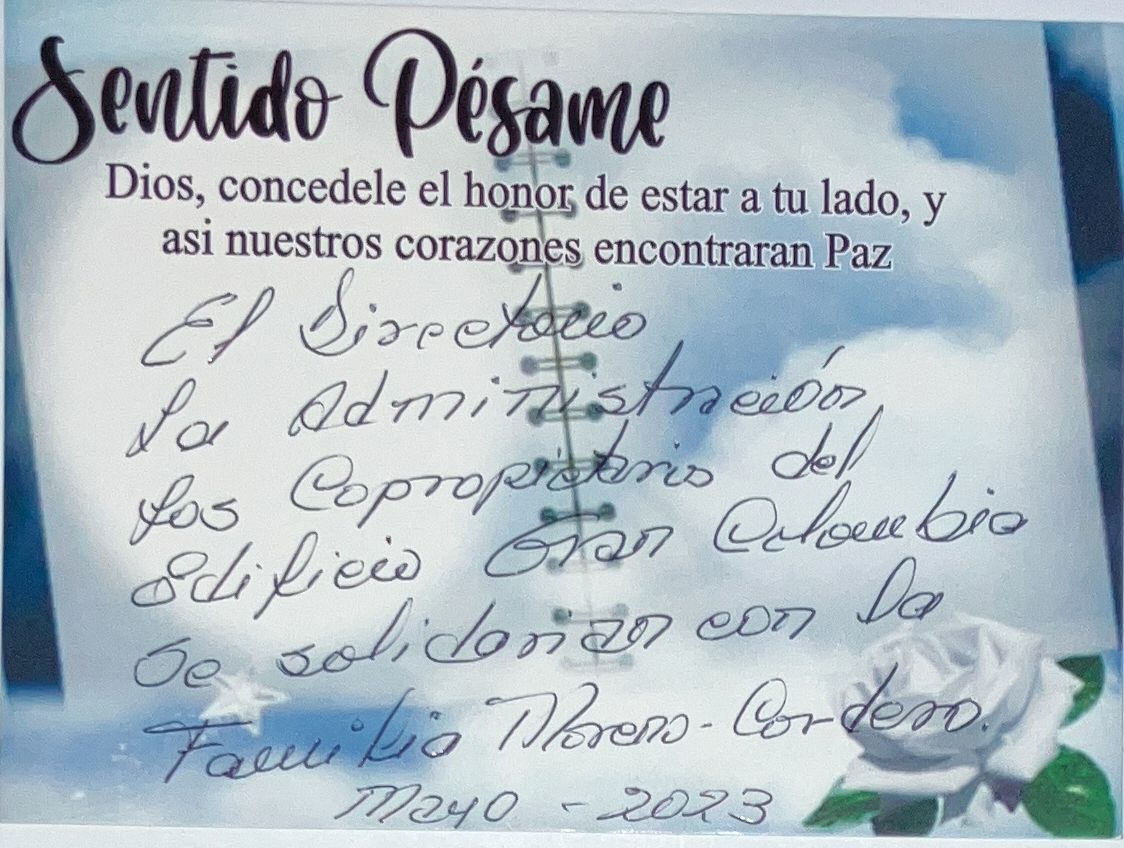 Sentido Pésame
Dios, concedele el honor de estar a tu lado, y
asi nuestros corazones encontraran Paz
El Directorio
La Administración,
Los Copropietario del
Edificio Gran Colombia
Se solidarizan con la
Familia Moreno-Cordero.
Mayo - 2023